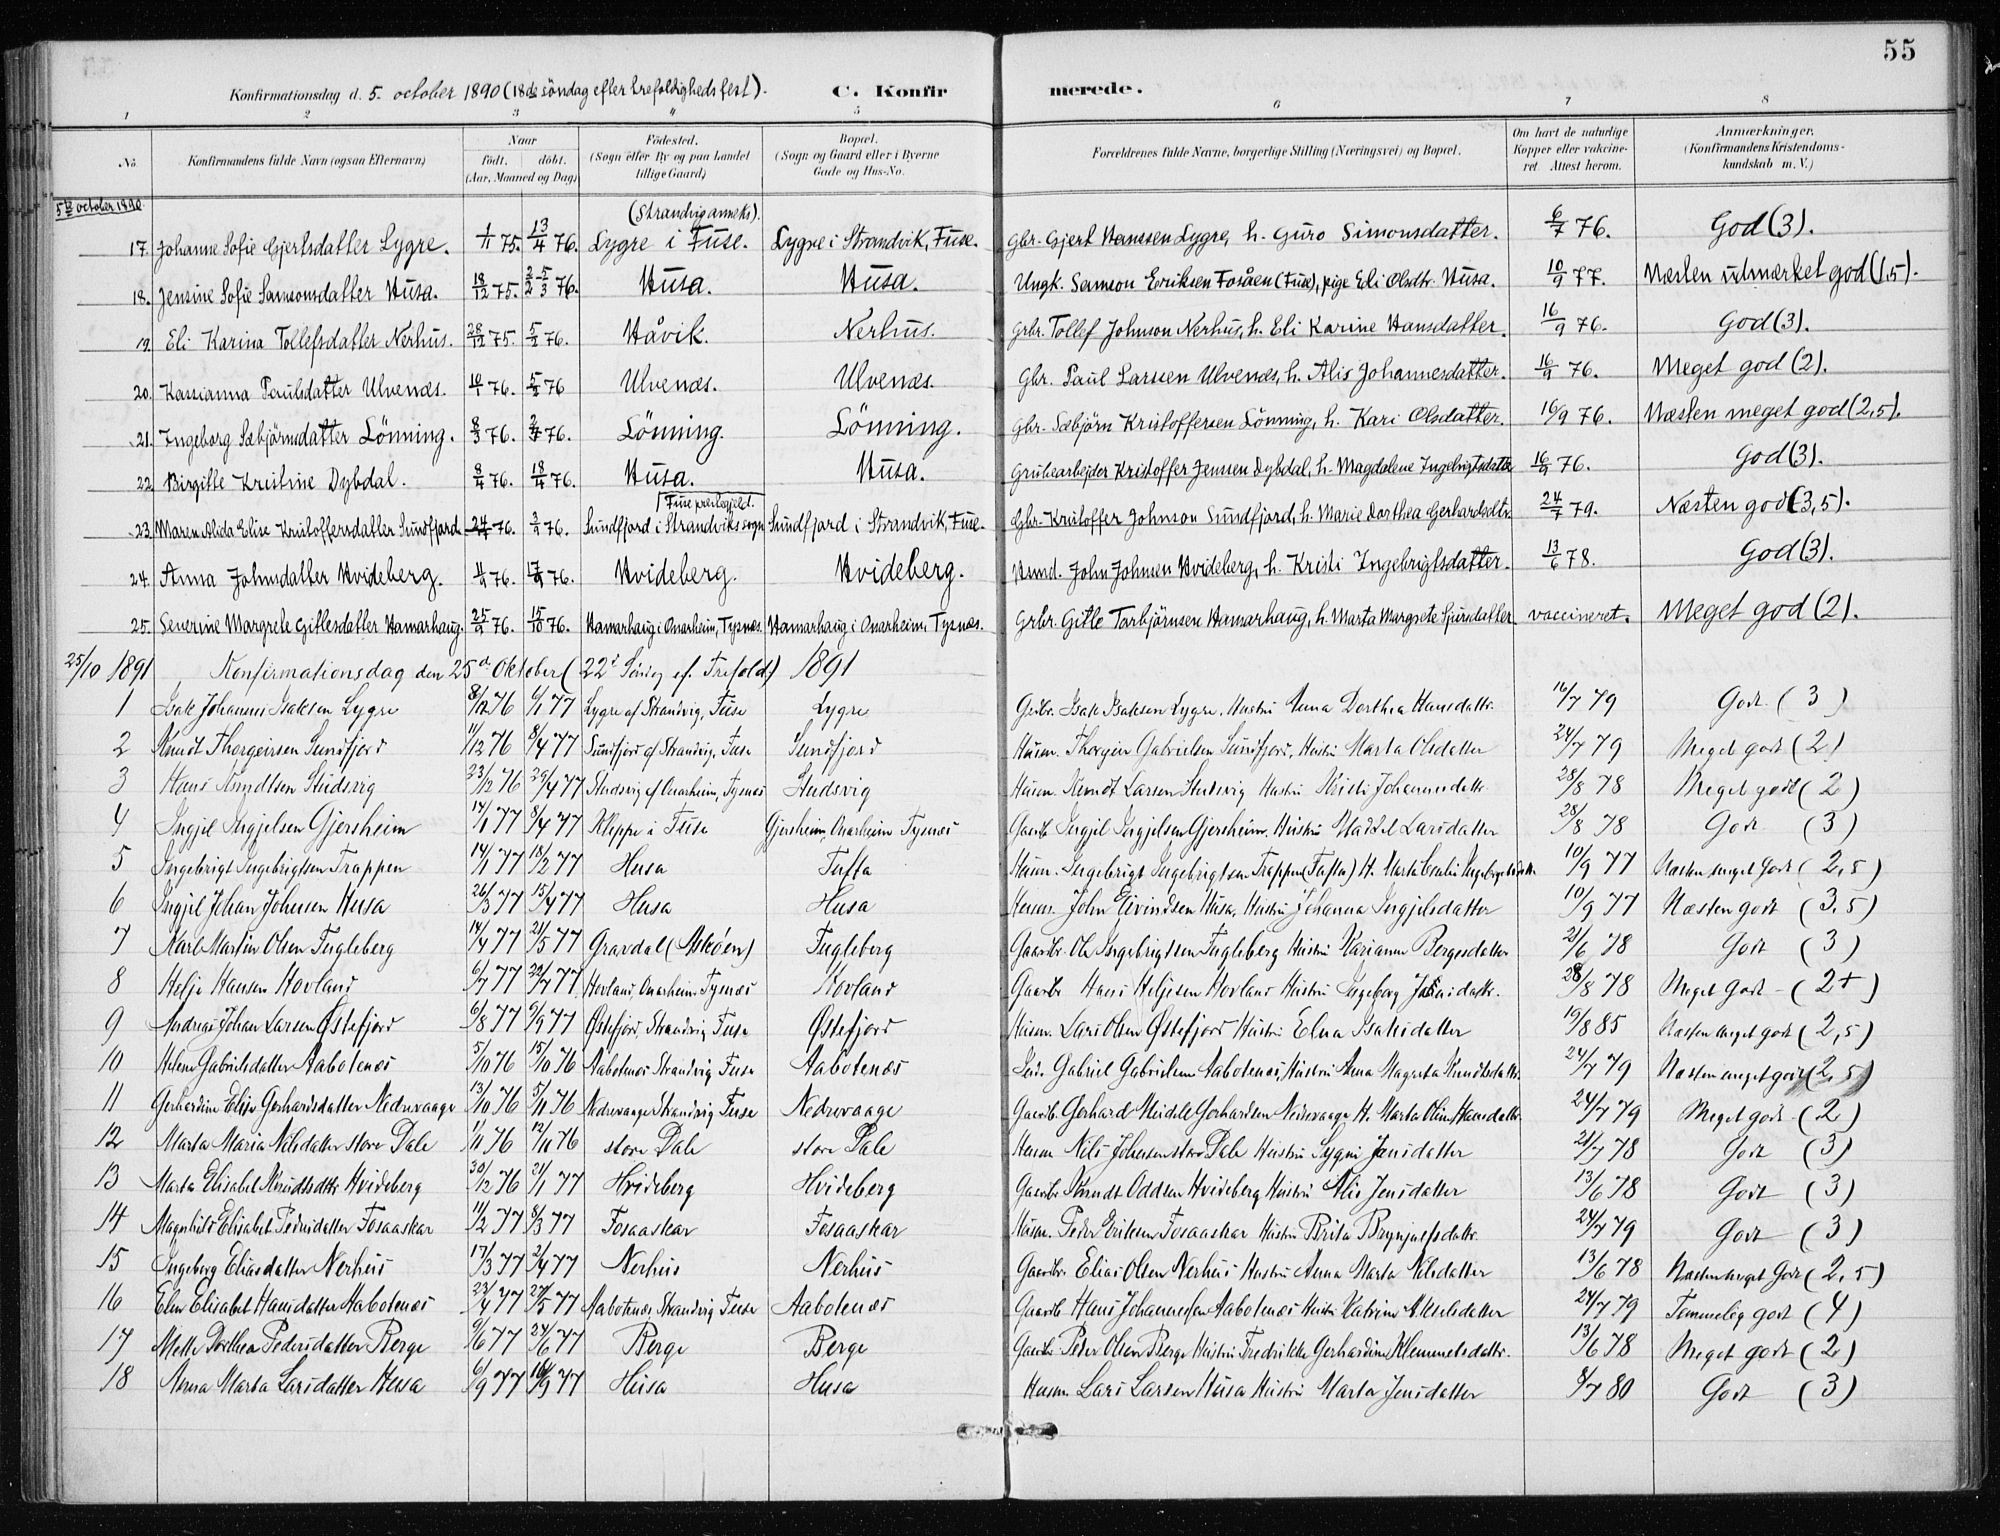 55
Konfirmationsdag d. 5. october 1890 (18de söndag efter trefoldighedsfest). C. Konfirmerede.
1 2 3 4 5 6 7 8
No. Konfirmandens fulde Navn (ogsaa Efternavn) Naar födt. döbt. (Aar, Maaned og Dag) Födested. (Sogn eller By og paa Landet tillige Gaard) Bopæl. (Sogn og Gaard eller i Byerne Gade og Hus-No. Forældrenes fulde Navne, borgerlige Stilling (Næringsvei) og Bopæl. Om havt de naturlige Kopper eller vaccineret. Attest herom. Anmærkninger. (Konfirmandens Kristendomskundskab m. V.)
5te october 1890.
(Strandvig anneks).
17. Johanne Sofie Gjertsdatter Lygre. 1/11 75. 13/4 76. Lygre i Fuse. Lygre i Strandvik, Fuse. Gbr. Gjert Hanssen Lygre, h. Guro Simonsdatter. 6/7 76. God (3).
18. Jensine Sofie Samsonsdatter Husa. 18/12 75. 2/2 5/3 76. Husa. Husa. Ungk. Samson Eriksen Fosåen (Fuse), pige Eli Olsdtr. Husa. 10/9 77. Næsten udmærket god (1,5).
19. Eli Karina Tollefsdatter Nerhus. 28/12 75. 5/2 76. Håvik. Nerhus. Grbr. Tollef Johnson Nerhus, h. Eli Karine Hansdatter. 16/9 76. God (3).
20. Kassianna Paulsdatter Ulvenæs. 10/1 76. 5/3 76 Ulvenæs. Ulvenæs. Gbr. Paul Larsen Ulvenæs, h. Alis Johannesdatter. 16/9 76. Meget god (2).
21. Ingeborg Sæbjörnsdatter Lönning. 8/3 76. 76. Lönning. Lönning. Gbr. Sæbjörn Kristoffersen Lönning, h. Kari Olsdatter. 16/9 76. Næsten meget god (2,5).
22. Birgitte Kristine Dybdal. 8/4 76. 18/4 76. Husa. Husa. Grubearbejder Kristoffer Jensen Dybdal, h. Magdalene Ingebrigtsdatter 16/9 76. God (3).
Fuse prestegjeld.
23. Maren Alida Elise Kristoffersdatter Sundfjord 76. 76. Sundfjord i Strandviks sogn Sundfjord i Strandvik, Fuse. Gbr. Kristoffer Johnson Sundfjord, h. Marie Dorthea Gerhardsdtr. 24/7 79. Næsten god (3,5).
24. Anna Johnsdatter Hvideberg. 76. 76. Hvideberg. Hvideberg. Hmd. John Johnsen Hvideberg, h. Kristi Ingebrigtsdatter. 13/6 78. God (3).
25. Severine Margrete Gitlesdatter Hamarhaug. 25/9 76. 15/10 76. Hamarhaug i Onarheim, Tysnæs. Hamarhaug i Onarheim, Tysnæs. Grbr. Gitle Torbjörnsen Hamarhaug, h. Marta Margrete Sjursdatter. vaccineret. Meget god (2).
25/10 1891 Konfirmationsdag den 25de Oktober (22d Söndag ef. Trefold.) 1891
1 Isak Johannes Isaksen Lygre 8/12 76 6/1 77 Lygre af Strandvig, Fuse Lygre Grbr. Isak Isaksen Lygre, Hustru Anna Dorthea Hansdattr. 16/7 79 Godt (3)
2 Knudt Thorgeirsen Sundfjord 11/12 76 8/4 77 Sundfjord af Strandvig, Fuse Sundfjord Husm. Thorgeir Gabrielsen Sundfjord, Hustru Marta Olsdatter 24/7 79 Meget godt (2)
3 Hans Knudtsen Studsvig 23/12 76 29/4 77 Studsvig af Onarheim, Tysnæs Studsvig Husm. Knudt Larsen Studsvig Hustru Kristi Johannesdattr 28/8 78 Meget godt (2)
4 Ingjel Ingjelsen Gjersheim 14/1 77 8/4 77 Kleppe i Fuse Gjersheim, Onarheim Tysnæs Gaardb. Ingjel Ingjelsen Gjersheim, Hustru Larsdatter 28/8 78 Godt (3)
5 Ingebrigt Ingebrigtsen Trappen 14/1 77 18/2 77 Husa Tufta Husm. Ingebrigt Ingebrigtsen Trappen (Tufta) H. Marta 10/9 77 Næsten meget Godt (2,5)
6 Ingjel Johan Johnsen Husa 26/3 77 15/4 77 Husa Husa Husm. John Eivindsen Husa, Hustru Johanna Ingjelsdatter 10/9 77 Næsten godt (3,5)
7 Karl Martin Olsen Fugleberg 14/4 77 21/5 77 Gravdal (Askøen) Fugleberg Gaardbr. Ole Ingebrigtsen Fugleberg Hustru Karianne Bergesdatter 21/6 78 Godt (3)
8 Helje Hansen Hovland 6/7 77 22/7 77 Hovland, Onarheim Tysnæs Hovland Gaardbr Hans Heljesen Hovland Hustru Ingeborg 28/8 78 Meget Godt (2+)
9 Andreas Johan Larsen Østefjord 6/8 77 9/9 77 Østefjord, Strandvig Fuse Østefjord Husm. Lars Olsen Østefjord Hustru Elna Isaksdatter 19/8 85 Næsten meget godt (2,5)
10 Helene Gabrielsdatter Aabotenæs 5/10 76 15/10 76 Aabotenæs Strandvig Fuse Aabotenæs Gabriel Gabrielsen Aabotenæs, Hustru Anna Magreta Knudtsdattr. 24/7 79 Næsten meget godt (2,5)
11 Gerhardine Elise Gerhardsdatter Nedrevaage 13/10 76 5/11 76 Nedrevaage Strandvig Fuse Nedrevaage Gaardbr Gerhard Meidel Gerhardsen Nedrevaage H. Marta Oline Hansdattr. 24/7 79 Meget godt (2)
12 Marta Maria Nilsdatter store Dale 1/11 76 12/11 76 store Dale store Dale Husm Nils Johnsen store Dale Hustru Sygni Jensdatter 21/7 78 Godt (3)
13 Marta Elisabet Knudtsdttr Hvideberg 30/12 76 21/1 77 Hvideberg Hvideberg Gaardbr Knudt Oddsen Hvideberg Hustru Alis Jensdatter 13/6 78 Godt (3)
14 Magnhild Elisabet Pedersdatter Fosaaskar 11/2 77 8/3 77 Fosaaskar Fosaaskar Husm. Peder Eriksen Fosaaskar Hustru Brita Brynjulfsdattr. 24/7 79 Godt (3)
15 Ingeborg Eliasdatter Nerhus 17/3 77 2/4 77 Nerhus Nerhus Gaardbr. Elias Olsen Nerhus Hustru Anna Marta Nilsdatter 13/6 78 Næsten meget Godt (2,5)
16 Elen Elisabet Hansdatter Aabotenæs 23/4 77 27/5 77 Aabotenæs Strandvig Fuse Aabotenæs Gaardbr Hans Johannesen Aabotenæs Hustru Katrine Akselsdatter 24/7 79 Temmelig godt (4)
17 Mette Dorthea Pedersdatter Berge 9/6 77 24/6 77 Berge Berge Gaardbr Peder Olsen Berge Hustru Fredrikke Gerhardine Klemmetsdattr. 13/6 78 Meget godt (2)
18 Anna Marta Larsdatter Husa 6/9 77 16/9 77 Husa Husa Husm Lars Larsen Husa Hustru Marta Jensdatter 8/7 80 Godt (3)